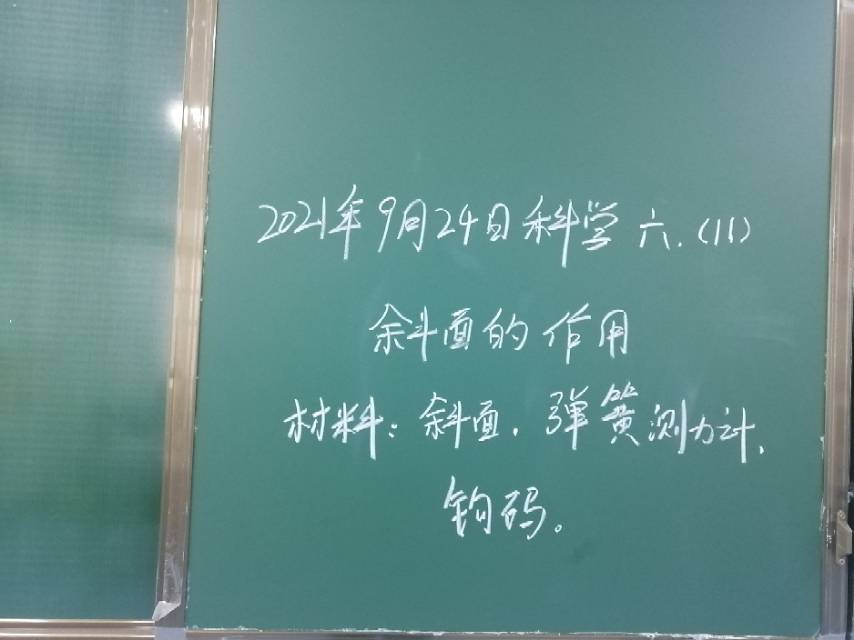 2021年9月24日科学六.(11)
斜面的作用
材料:斜面.弹簧测力计、
钩码。